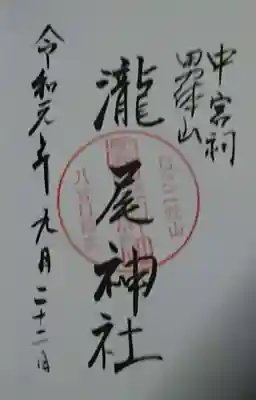 中宮祠
男体山
瀧尾神社
令和元年九月二十二日